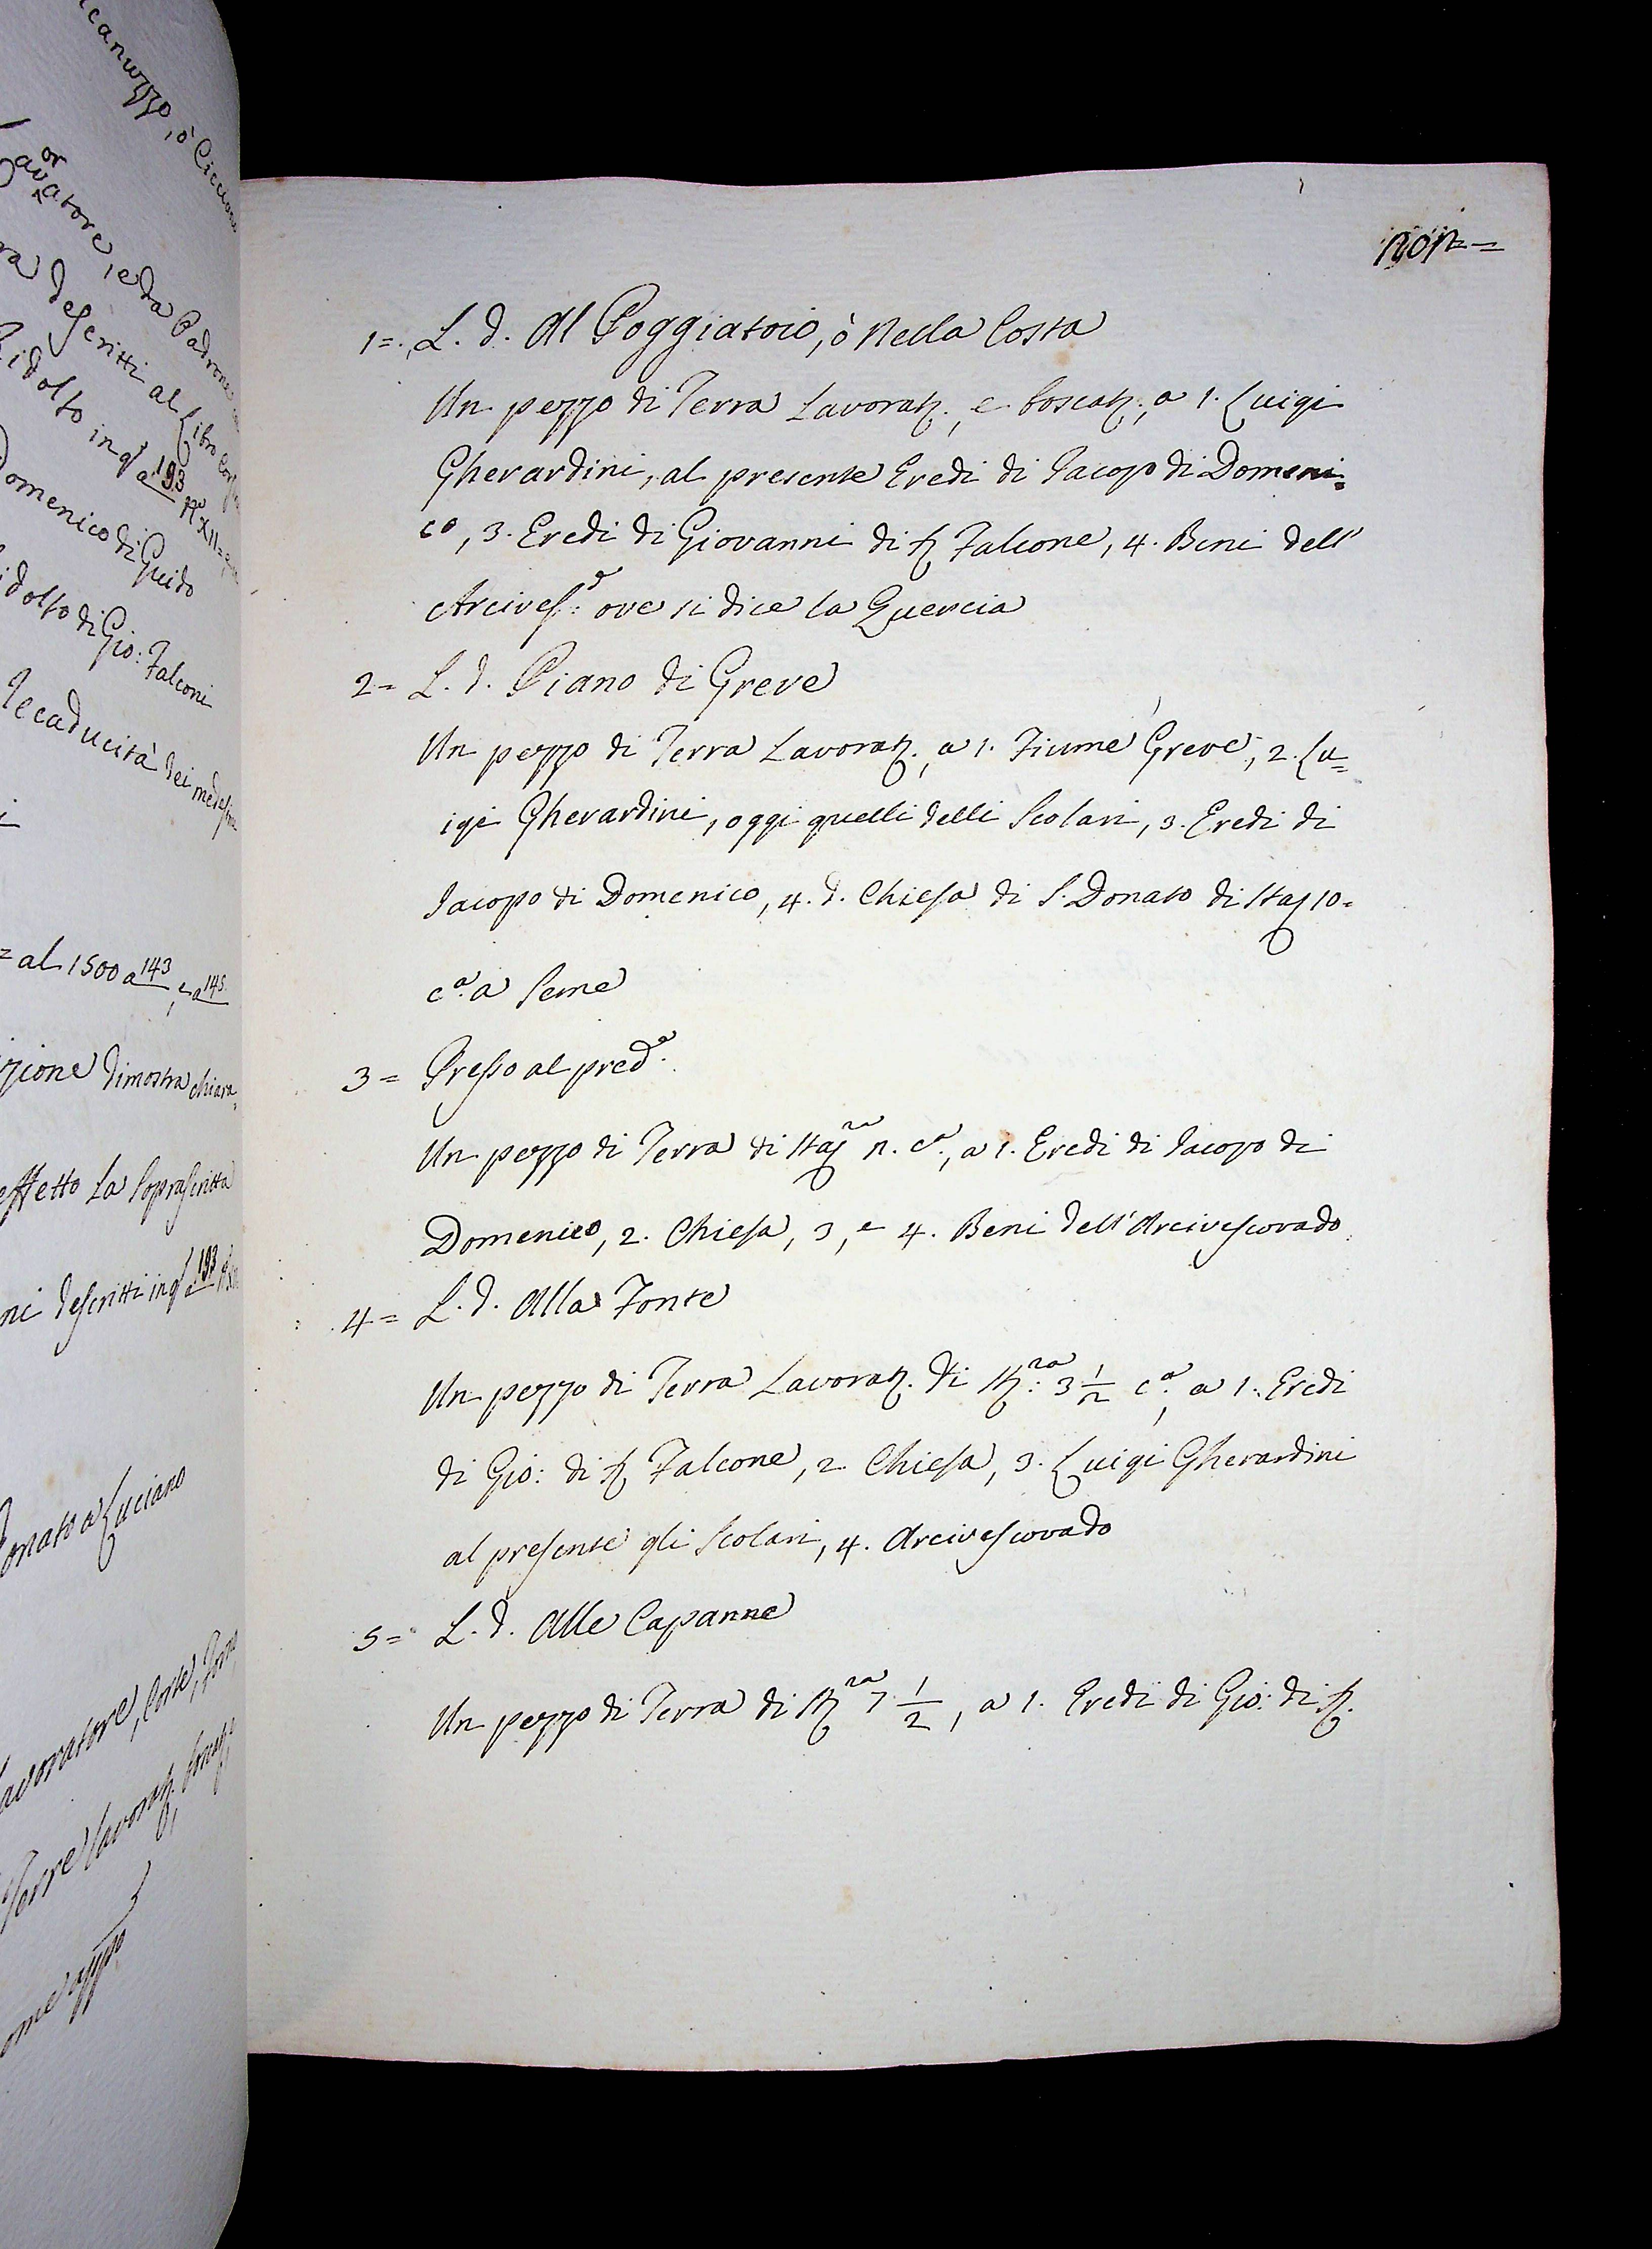 1=. L. d. Al Poggiatoio, ò Nella Costa
Un pezzo di Terra Lavorat. e boscat., a 1. Luigi
Gherardini, al presente Eredi di Jacopo di Domeni=
co, 3. Eredi di Giovanni di Falcone, 4. Beni dell'
Arcives.º ove si dice la Quercia
2= L. d. Piano di Greve
Un pezzo di Terra Lavorat., a 1. Fiume Greve, 2. Lu=
igi Gherardini, oggi quelli delli Scolari, 3. Eredi di
Jacopo di Domenico, 4. d. Chiesa di S. Donato di Staj 10=
cª. a Seme
3= Presso al predº.
Un pezzo di Terra di Stajra n. cª., a 1. Eredi di Jacopo di
Domenico, 2. Chiesa, 3, e 4. Beni dell'Arcivescovado
4= L. d. Alla Fonte
Un pezzo di Terra Lavorat. di St:ra 3 1/2 cª., a 1. Eredi
di Gio: di Falcone, 2 Chiesa, 3. Luigi Gherardini
al presente gli Scolari, 4. Arcivescovado
5= L. d. Alle Capanne
Un pezzo di Terra di Stra 7 1/2, a 1. Eredi di Gio: di
al 1500 a 143, e a 145
Domenico di Guido
dolfo di Gio: Falconi
le caducità dei medesimi
zione dimostra chiara=
effetto la soprascritta
ni descritti in
Donato a Luciano
lavoratore, Corte,
Terre lavorat.